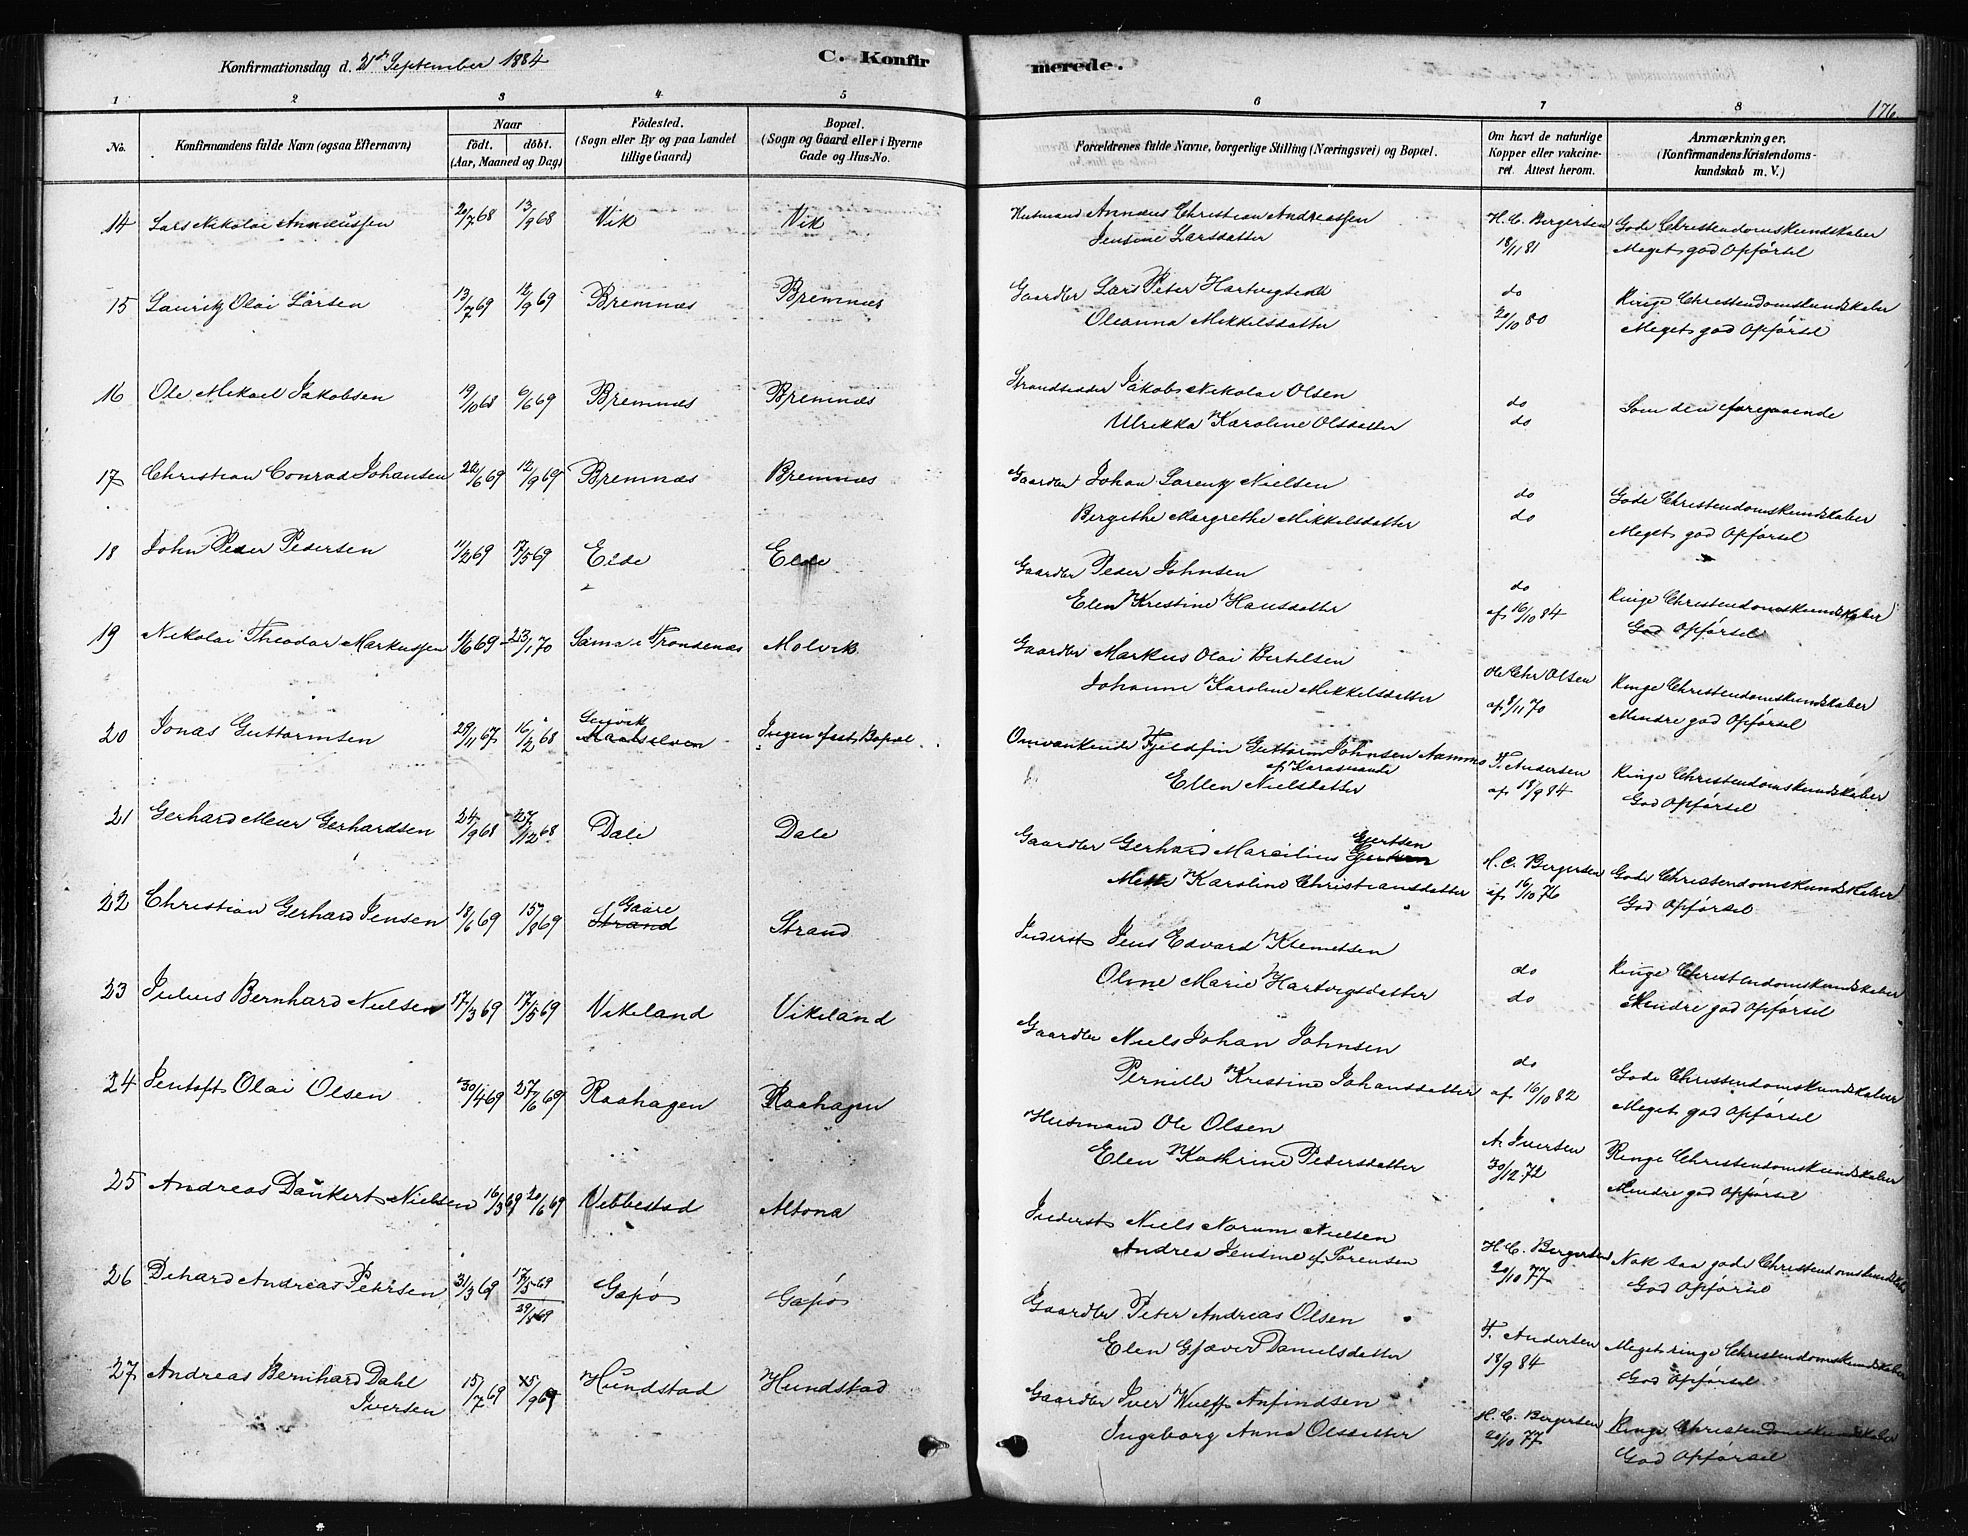 Konfirmationsdag d. 21de September 1884
C. Konfirmerede.
176
1 2 3 4 5 6 7 8
No.
Konfirmandens fulde Navn (ogsaa Efternavn)
Naar
födt. döbt.
(Aar, Maaned og Dag)
Födested.
(Sogn eller By og paa Landet
tillige Gaard)
Bopæl.
(Sogn og Gaard eller i Byerne
Gade og Hus-No.
Forældrenes fulde Navne, borgerlige Stilling (Næringsvei) og Bopæl.
Om havt de naturlige
Kopper eller vakcine-
ret. Attest herom.
Anmærkninger,
(Konfirmandens Kristendoms-
kundskab m. V.)
14 Lars Nikolai Annæussen 20/7 68 13/9 68 Vik Vik Husmand Annæus Christian Andreassen H. C. Bergersen Gode Christendomskundskaber
Jensine Larsdatter 18/11 81 Meget god Opførsel
15 Lauritz Olai Larsen 13/7 69 12/9 69 Bremnæs Bremnæs Gaardbr Lars Peter Hartvigsen do Ringe Christendomskundskaber
Oleanna Mikkelsdatter 20/10 80 Meget god Opførsel
16 Ole Mikael Jakobsen 19/10 68 6/6 69 Bremnæs Bremnæs Strandsidder Jakob Nikolai Olsen do Som den foregaaende
Ulrikka Karoline Olsdatter do
17 Christian Conrad Johansen 22/6 69 12/9 69 Bremnæs Bremnæs Gaardbr Johan Lorentz Nielsen do Gode Christendomskundskaber
Bergithe Margrethe Mikkelsdatter do Meget god Opførsel
18 John Peder Pedersen 11/2 69 17/5 69 Eide Eide Gaardbr Peder Johnsen do Ringe Christendomskundskaber
Elen Kristine Hansdatter af 16/10 84 God Opførsel
19 Nikolai Theodor Markussen 11/6 69 23/1 70 Sama i Trondenæs Molvik Gaardbr Markus Olai Bertelsen Ole Chr Olsen Ringe Christendomskundskaber
Johanne Karoline Mikkelsdatter af 8/11 70 Mindre god Opførsel
20 Jonas Guttormsen 29/11 67 16/2 68 Maalselven Ingen fast Bopæl Omvankende Fjeldfin Guttorm Johnsen F. Andersen Ringe Christendomskundskaber
Ellen Nielsdatter af 18/9 84 God Opførsel
21 Gerhard Meier Gerhardsen 24/9 68 27/12 68 Dale Dale Gaardbr Gerhard Marcilius Gjertsen H. C. Bergersen Gode Christendomskundskaber
Mette Karoline Christiansdatter af 16/10 76 God Opførsel
22 Christian Gerhard Jensen 18/6 69 15/8 69 Gaare Strand Strand Inderst Jens Edvard Klemetsen do Ringe Christendomskundskaber
Oline Marie Hartvigsdatter do Mindre god Opførsel
23 Julius Bernhard Nielsen 17/3 69 17/5 69 Vikeland Vikeland Gaardbr Niels Johan Johnsen do Gode Christendomskundskaber
Pernille Kristine Johansdatter af 16/10 82 Meget god Opførsel
24 Jentoft Olai Olsen 30/4 69 27/6 69 Raahagen Raahagen Husmand Ole Olsen A. Iversen Ringe Christendomskundskaber
Elen Kathrine Pedersdatter 30/12 72 Mindre god Opførsel
25 Andreas Dankert Nielsen 16/3 69 20/6 69 Vebbestad Altona Inderst Niels Norum Nielsen H. C. Bergersen Nok saa gode Christendomskundskaber
Andrea Jensine f. Sørensen 20/10 77 God Opførsel
26 Dehard Andreas Petersen 31/3 69 17/5 69 29/8 69 Gapø Gapø Gaardbr Peter Andreas Olsen F. Andersen Meget ringe Christendomskundskaber
Elen Gjæver Danielsdatter 18/9 84 God Opførsel
27 Andreas Bernhard Dahl 15/7 69 Hundstad Hundstad Gaardbr Iver Wulff Anfindsen H. C. Bergersen Ringe Christendomskundskaber
Iversen Ingeborg Anna Olsdatter 20/10 77 God Opførsel